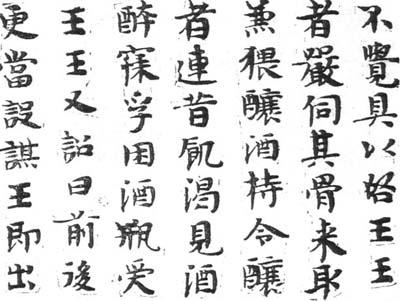 不覺具以啓王王
者嚴伺其骨来取
兼猥釀酒持令釀
者連昔飢渴見酒
醉寐孚因酒瓶受
王王又詔曰前後
更當設謀王即出